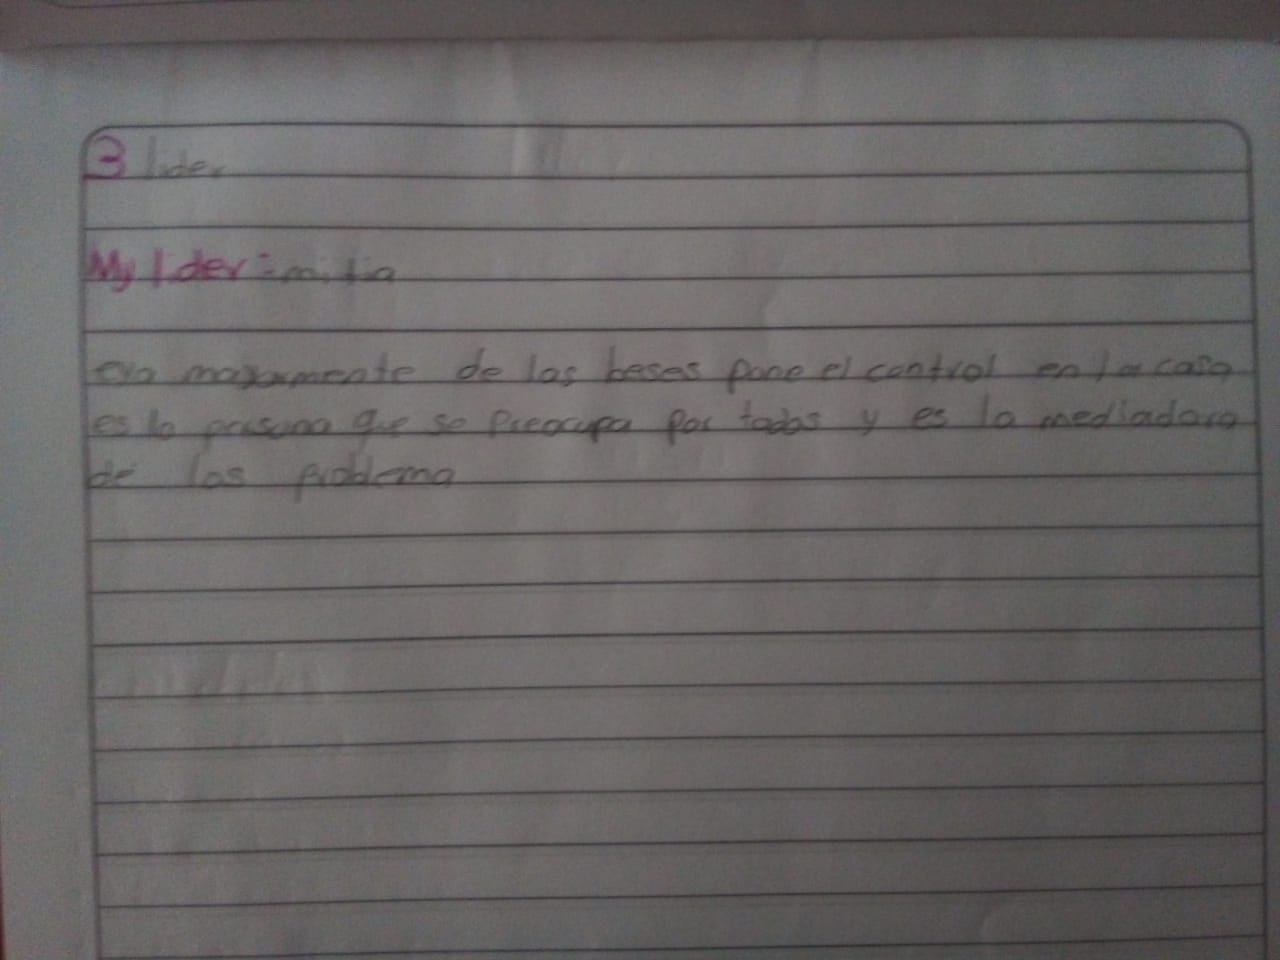 3 lider
My lider: mi tia
eya mayormente de las beses pone el control en la casa
es la persona que se preocupa por todos y es la mediadora
de los problema